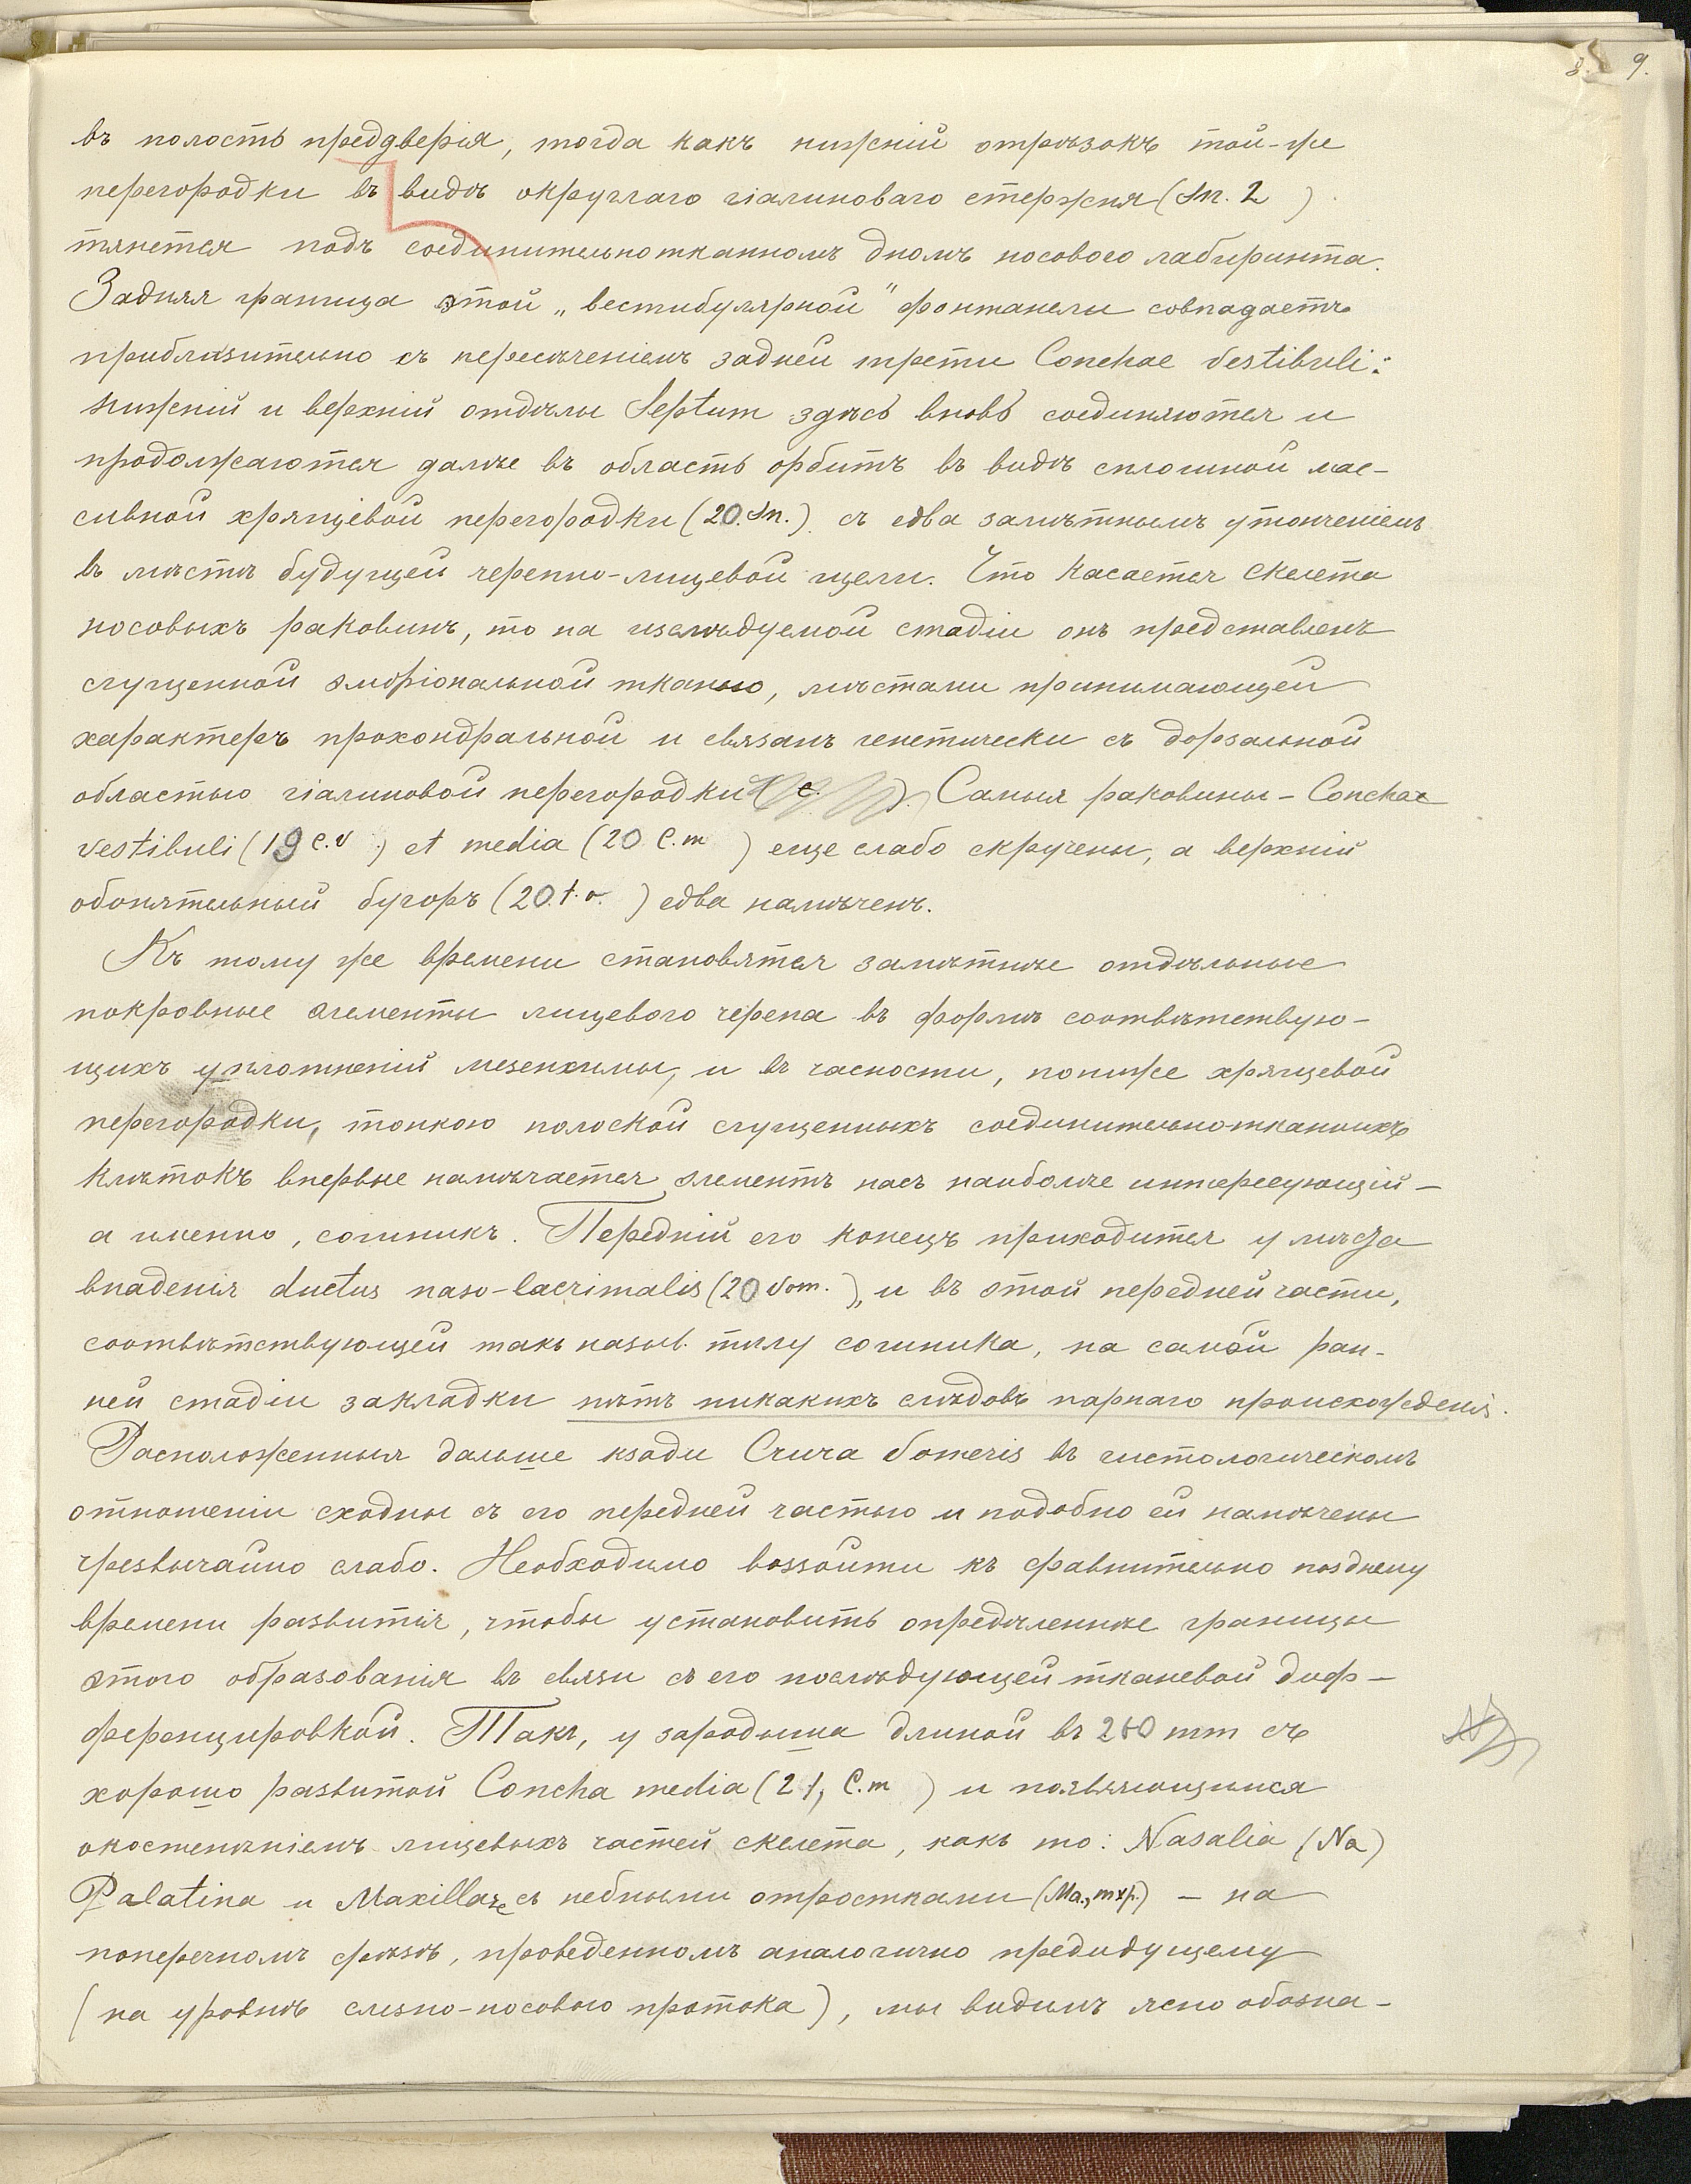 8. 9.
въ полость предверія, тогда какъ нижній отрѣзокъ той-же
перегородки въ видѣ округлаго гіалиноваго стержня (Sn. 2 )
тянется подъ соединительнотканномъ дномъ носового лабиринта.
Задняя граница этой „вестибулярной" фонтанели совпадаетъ
приблизительно съ пересѣченіемъ задней трети Conchae vestibuli:
нижній и верхній отдѣлы Septum здѣсь вновь соединяются и
продолжаются далѣе въ область орбитъ въ видѣ сплошной мас-
сивной хрящевой перегородки (20. Sn.) съ едва замѣтнымъ утонченіемъ
въ мѣстѣ будущей черепно-лицевой щели. Что касается скелета
носовыхъ раковинъ, то на изслѣдуемой стадіи онъ представленъ
сгущенной эмбріональной тканью, мѣстами принимающей
характеръ прохондральной и связанъ генетически съ дорзальной
областью гіалиновой перегородки ( c. ). Самыя раковины - Conchae
vestibuli (19 c.v ) et media (20 C.m ) еще слабо скручены, а верхній
обонятельный бугоръ (20. t.o. ) едва намѣченъ.
Къ тому же времени становятся замѣтнѣе отдѣльные
покровные элементы лицевого черепа въ формѣ соотвѣтствую-
щихъ уплотненій мезенхимы, и въ часности, пониже хрящевой
перегородки, тонкою полоской сгущенныхъ соединительнотканныхъ
клѣтокъ впервые намѣчается элементъ насъ наиболѣе интересующій -
а именно, сошникъ. Передній его конецъ приходится у мѣста
впаденія ductus naso-lacrimalis (20 Vom. ), и въ этой передней части,
соотвѣтствующей такъ назыв. тѣлу сошника, на самой ран-
ней стадіи закладки нѣтъ никакихъ слѣдовъ парнаго происхожденія.
Расположенныя дальше кзади Crura Vomeris въ гистологическомъ
отношеніи сходны съ его передней частью и подобно ей намѣчены
чрезвычайно слабо. Необходимо воззойти къ сравнительно позднему
времени развитія, чтобы установить опредѣленные границы
этого образованія въ связи съ его послѣдующей тканевой диф-
ференцировкой. Такъ, у зародыша длиной въ 260 mm съ
хорошо развитой Concha media (21, C.m ) и появляющимся
окостенѣніемъ лицевыхъ частей скелета, какъ то: Nasalia (Na)
Palatina и Maxillae съ небными отростками (Ma., mxp.) - на
поперечномъ срѣзѣ, проведенномъ аналогично предидущему
(на уровнѣ слезно-носового протока), мы видимъ ясно обозна-